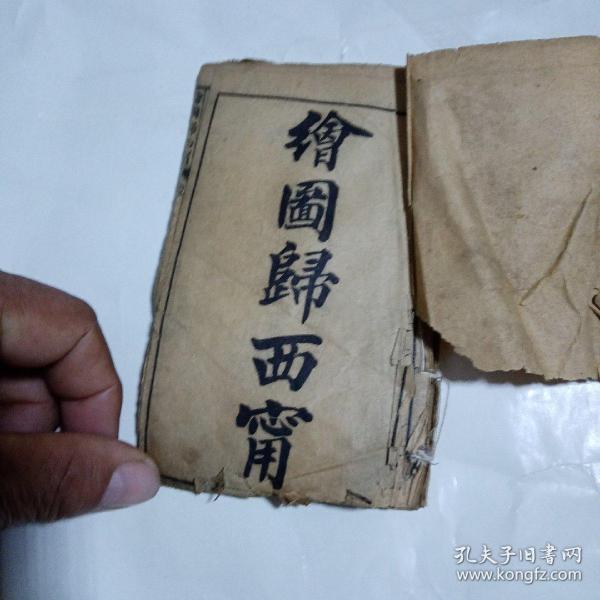 繪圖歸西甯
孔夫子旧書网
www.kongfz.com